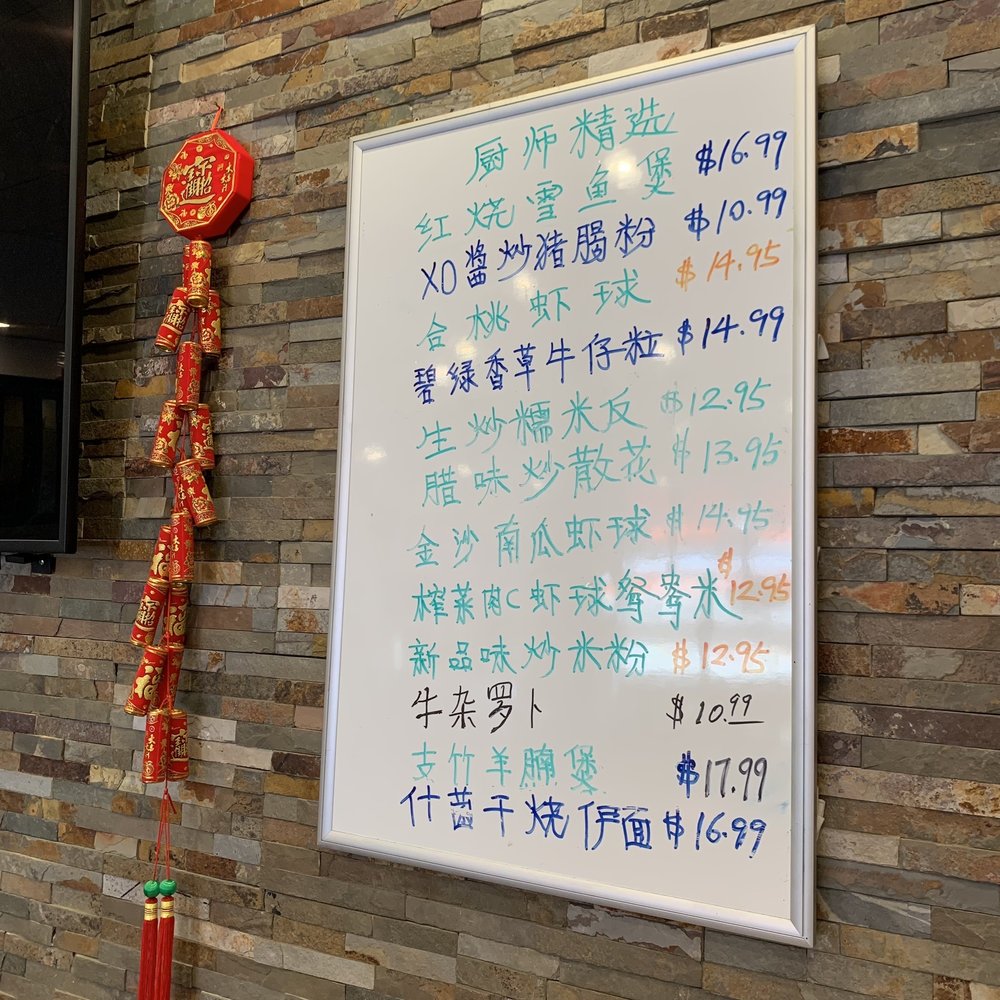 厨师精选
红烧雪鱼煲 $16.99
XO醬炒猪腸粉 $10.99
合桃虾球 $14.95
碧绿香草牛仔粒 $14.99
生炒糯米反 $12.95
腊味炒散花 $13.95
金沙南瓜虾球 $14.95
榨菜肉C虾球鸳鸯米 $12.95
新品味炒米粉 $12.95
牛杂罗卜 $10.99
支竹羊腩煲 $17.99
什菌干烧伊面 $16.99
福